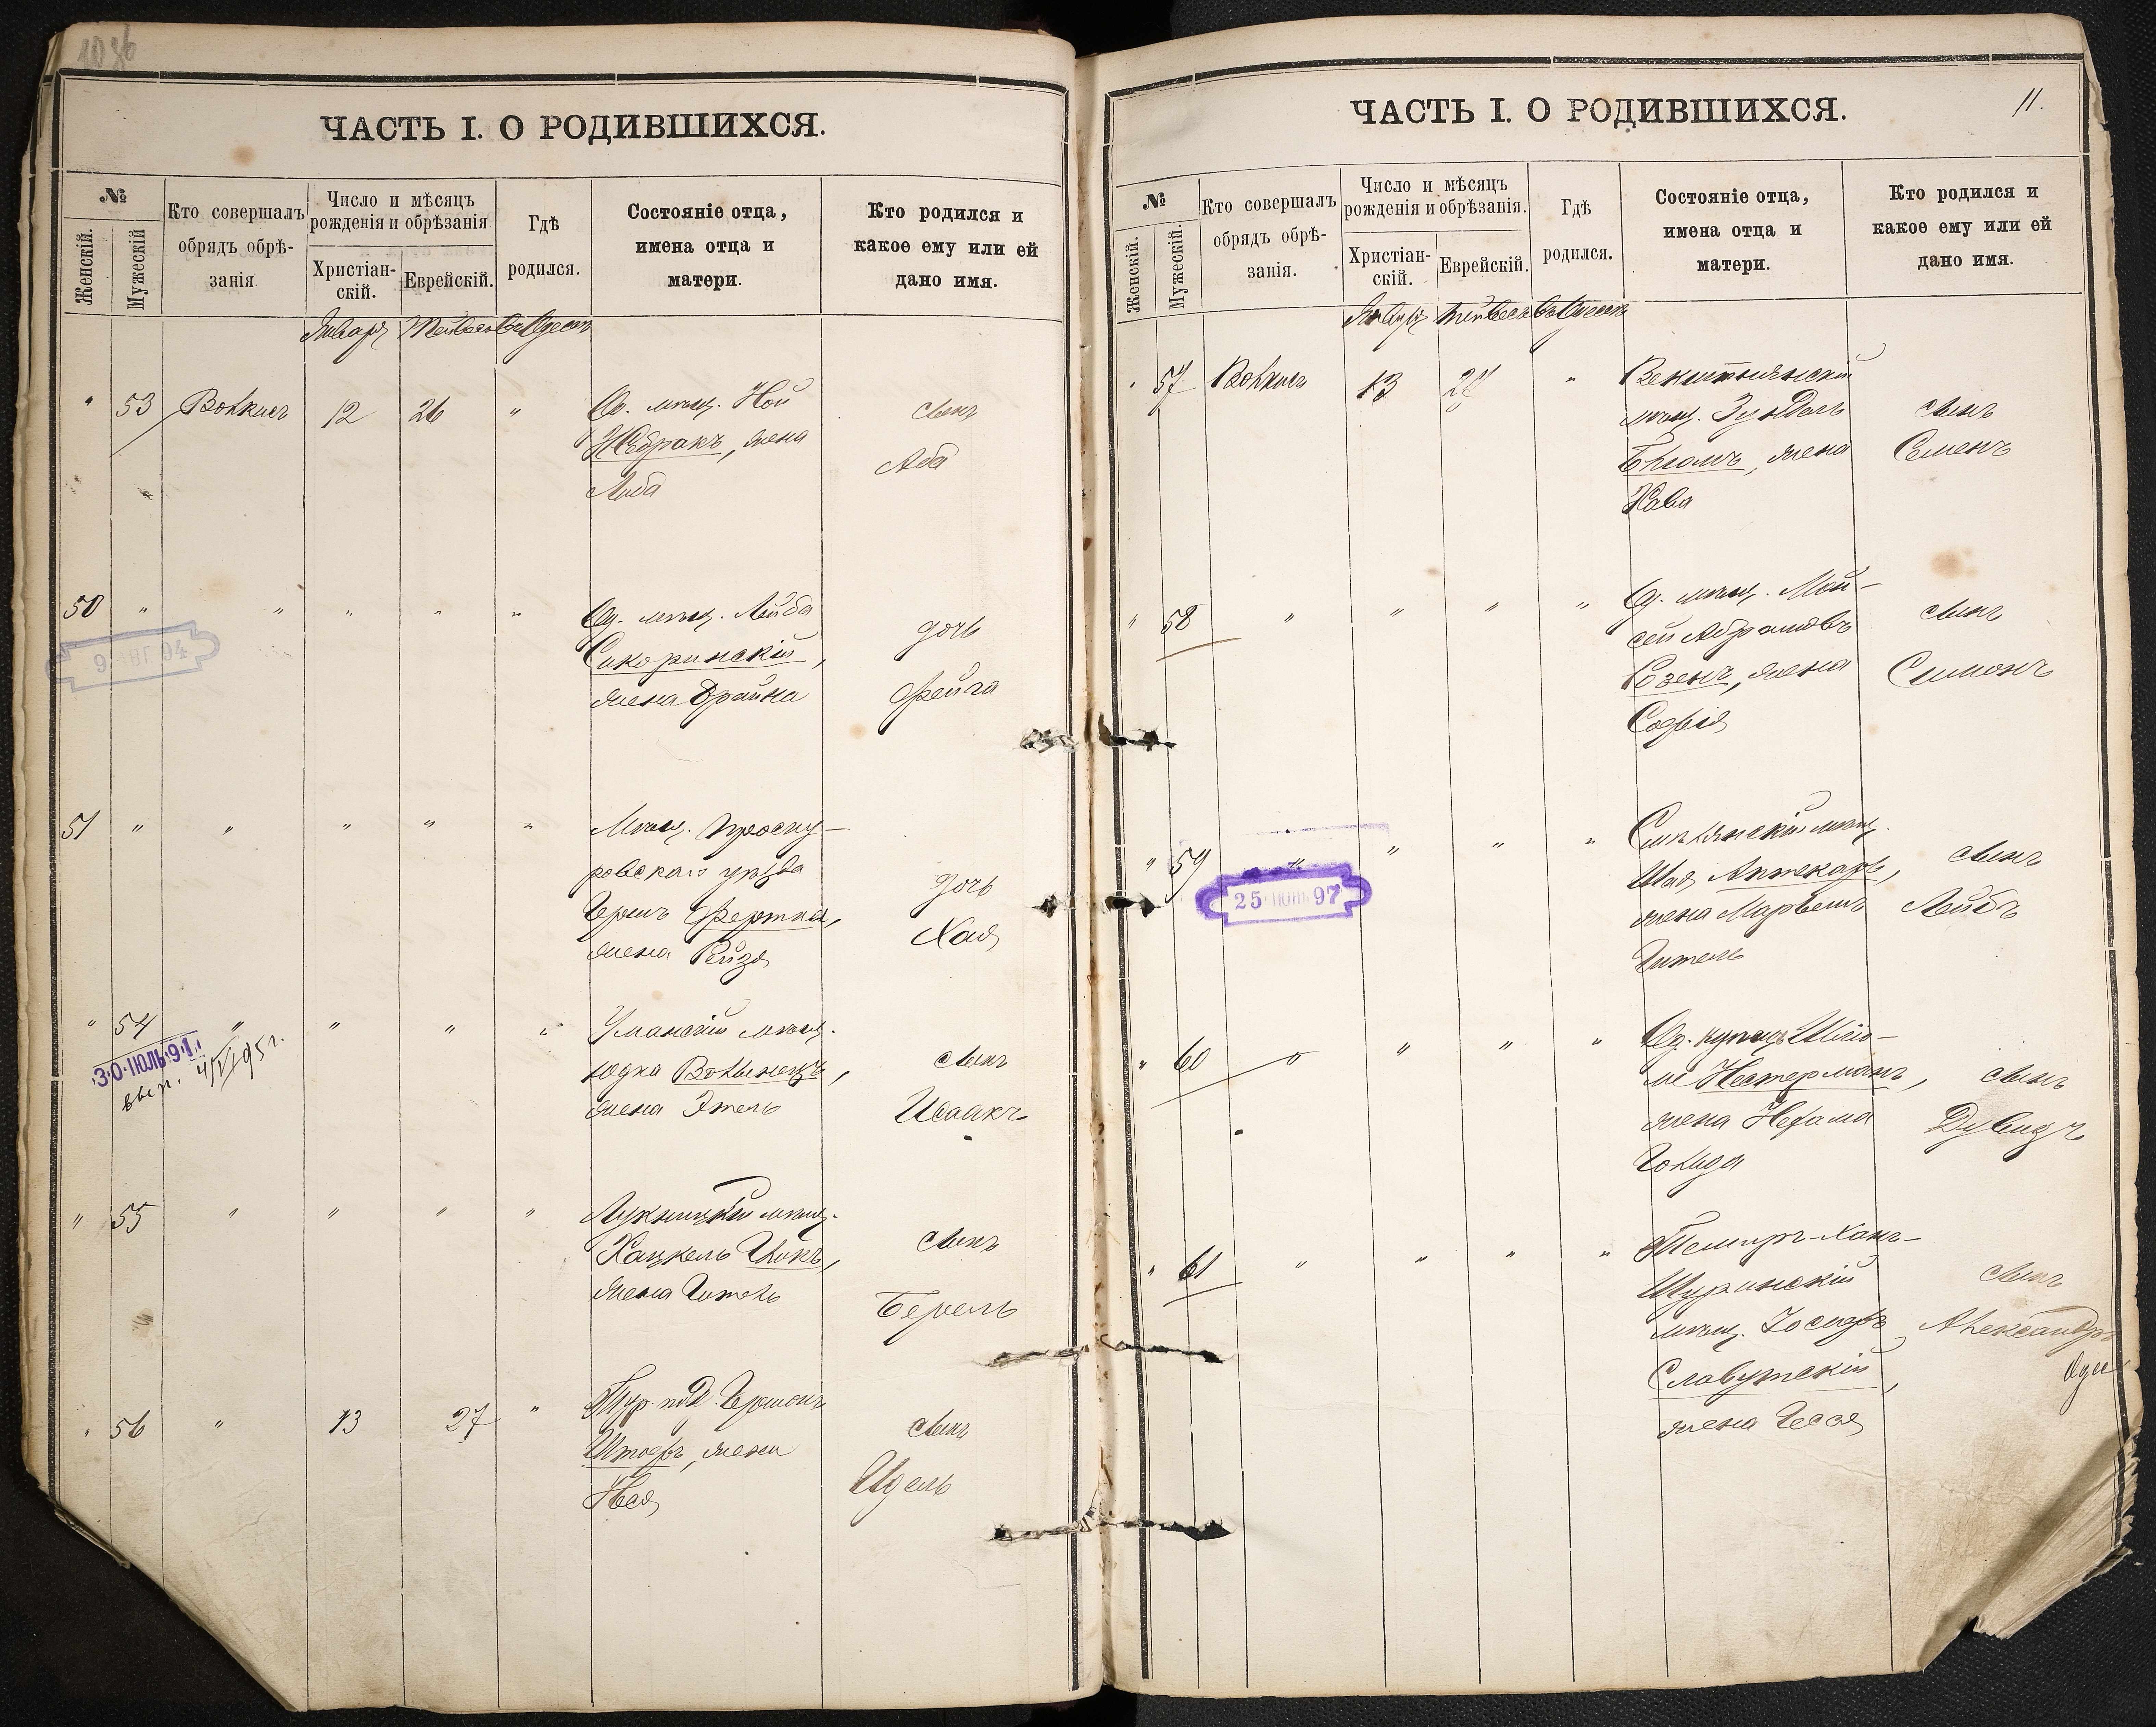 1036
ЧАСТЬ I. О РОДИВШИХСЯ.
№
Женскій.
Мужескій
Кто совершалъ
обрядъ обрѣ-
занія
Число и мѣсяцъ
рожденія и обрѣзанія
Христіан-
скій.
Еврейскій.
Гдѣ
родился.
Состояніе отца,
имена отца и
матери.
Кто родился и
какое ему или ей
дано имя.
Январь Тейвесъ Въ Одессѣ
" 53 Волкисъ 12 26 " Од. мѣщ. Ной
Жебракъ, жена
Либа
сынъ
Аба
50 " " " " " Од. мѣщ. Лейба
Сикоринскій,
жена Брайна
дочь
Фейга
9 АВГ 94
51 " " " " " Мѣщ. Проску-
ровскаго уѣзда
Гершъ Фертка,
жена Рейзя
дочь
Хая
" 54 " " " " Уманскій мѣщ.
Юдка Волынецъ,
жена Этель
сынъ
Исаакъ
30 ІЮЛЬ 91
вып. 4/VI 95 г.
" 55 " " " " мѣщ.
Хацкель Цикъ,
жена Гитель
сынъ
Берель
" 56 " 13 27 " Тур. под. Гершонъ
Штофъ, жена
Нося
сынъ
Идель
ЧАСТЬ I. О РОДИВШИХСЯ.
11.
№
Женскій.
Мужескій.
Кто совершалъ
обрядъ обрѣ-
занія.
Число и мѣсяцъ
рожденія и обрѣзанія.
Христіан-
скій.
Еврейскій.
Гдѣ
родился.
Состояніе отца,
имена отца и
матери.
Кто родился и
какое ему или ей
дано имя.
Январь Тейвесъ Въ Одессѣ
" 57 Волкисъ 13 27 "
мѣщ. Зундель
Блюмъ, жена
Хава
сынъ
Семенъ
" 58 " " " " Од. мѣщ. Мой-
сей Абрамовъ
Розенъ, жена
Софія
сынъ
Симонъ
" 59 " " " " мѣщ.
Шая Аптекарь,
жена Марьемъ
Гитель
сынъ
Лейбъ
25 ІЮНЬ 97
" 60 " " " " Од. купецъ Шлio-
ме Нестерманъ,
жена Нехама
Голида
сынъ
Дувидъ
" 61 " " " " Темиръ-Ханъ-
Шуринскій
мѣщ. Іосифъ
Славутскій,
жена Гесся
сынъ
Александръ